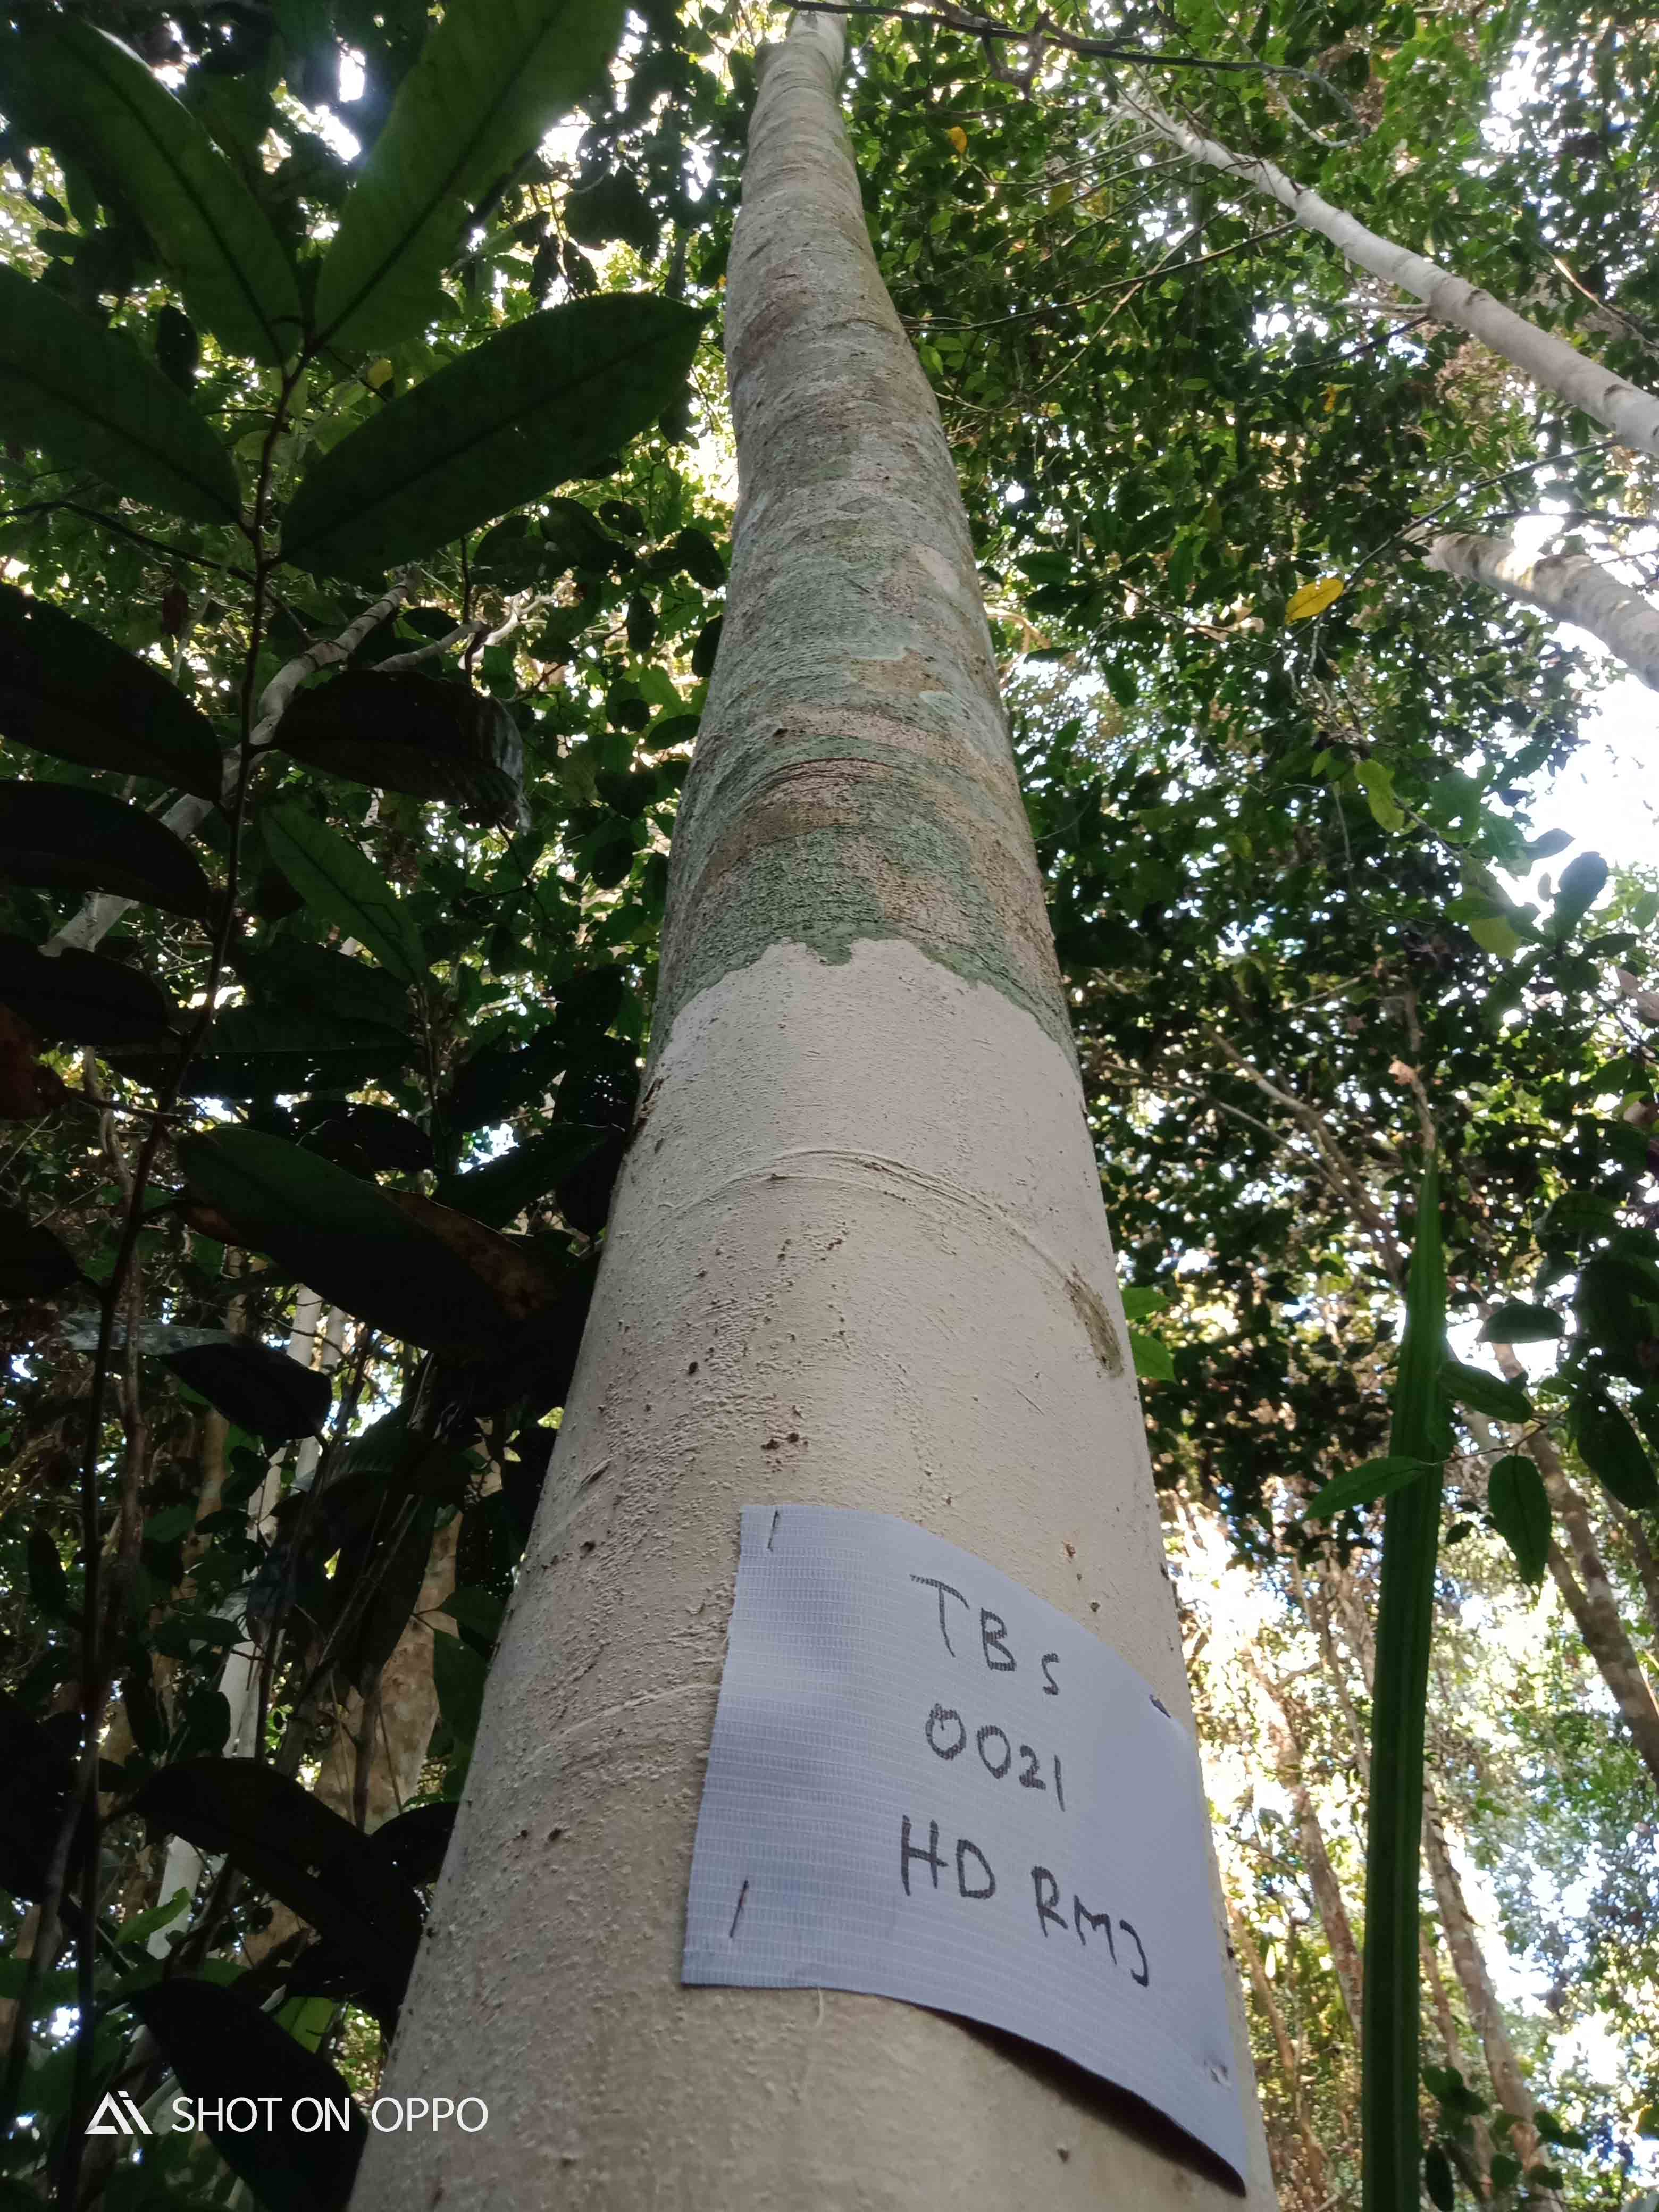 TBS
0021
HD RMJ
SHOT ON OPPO